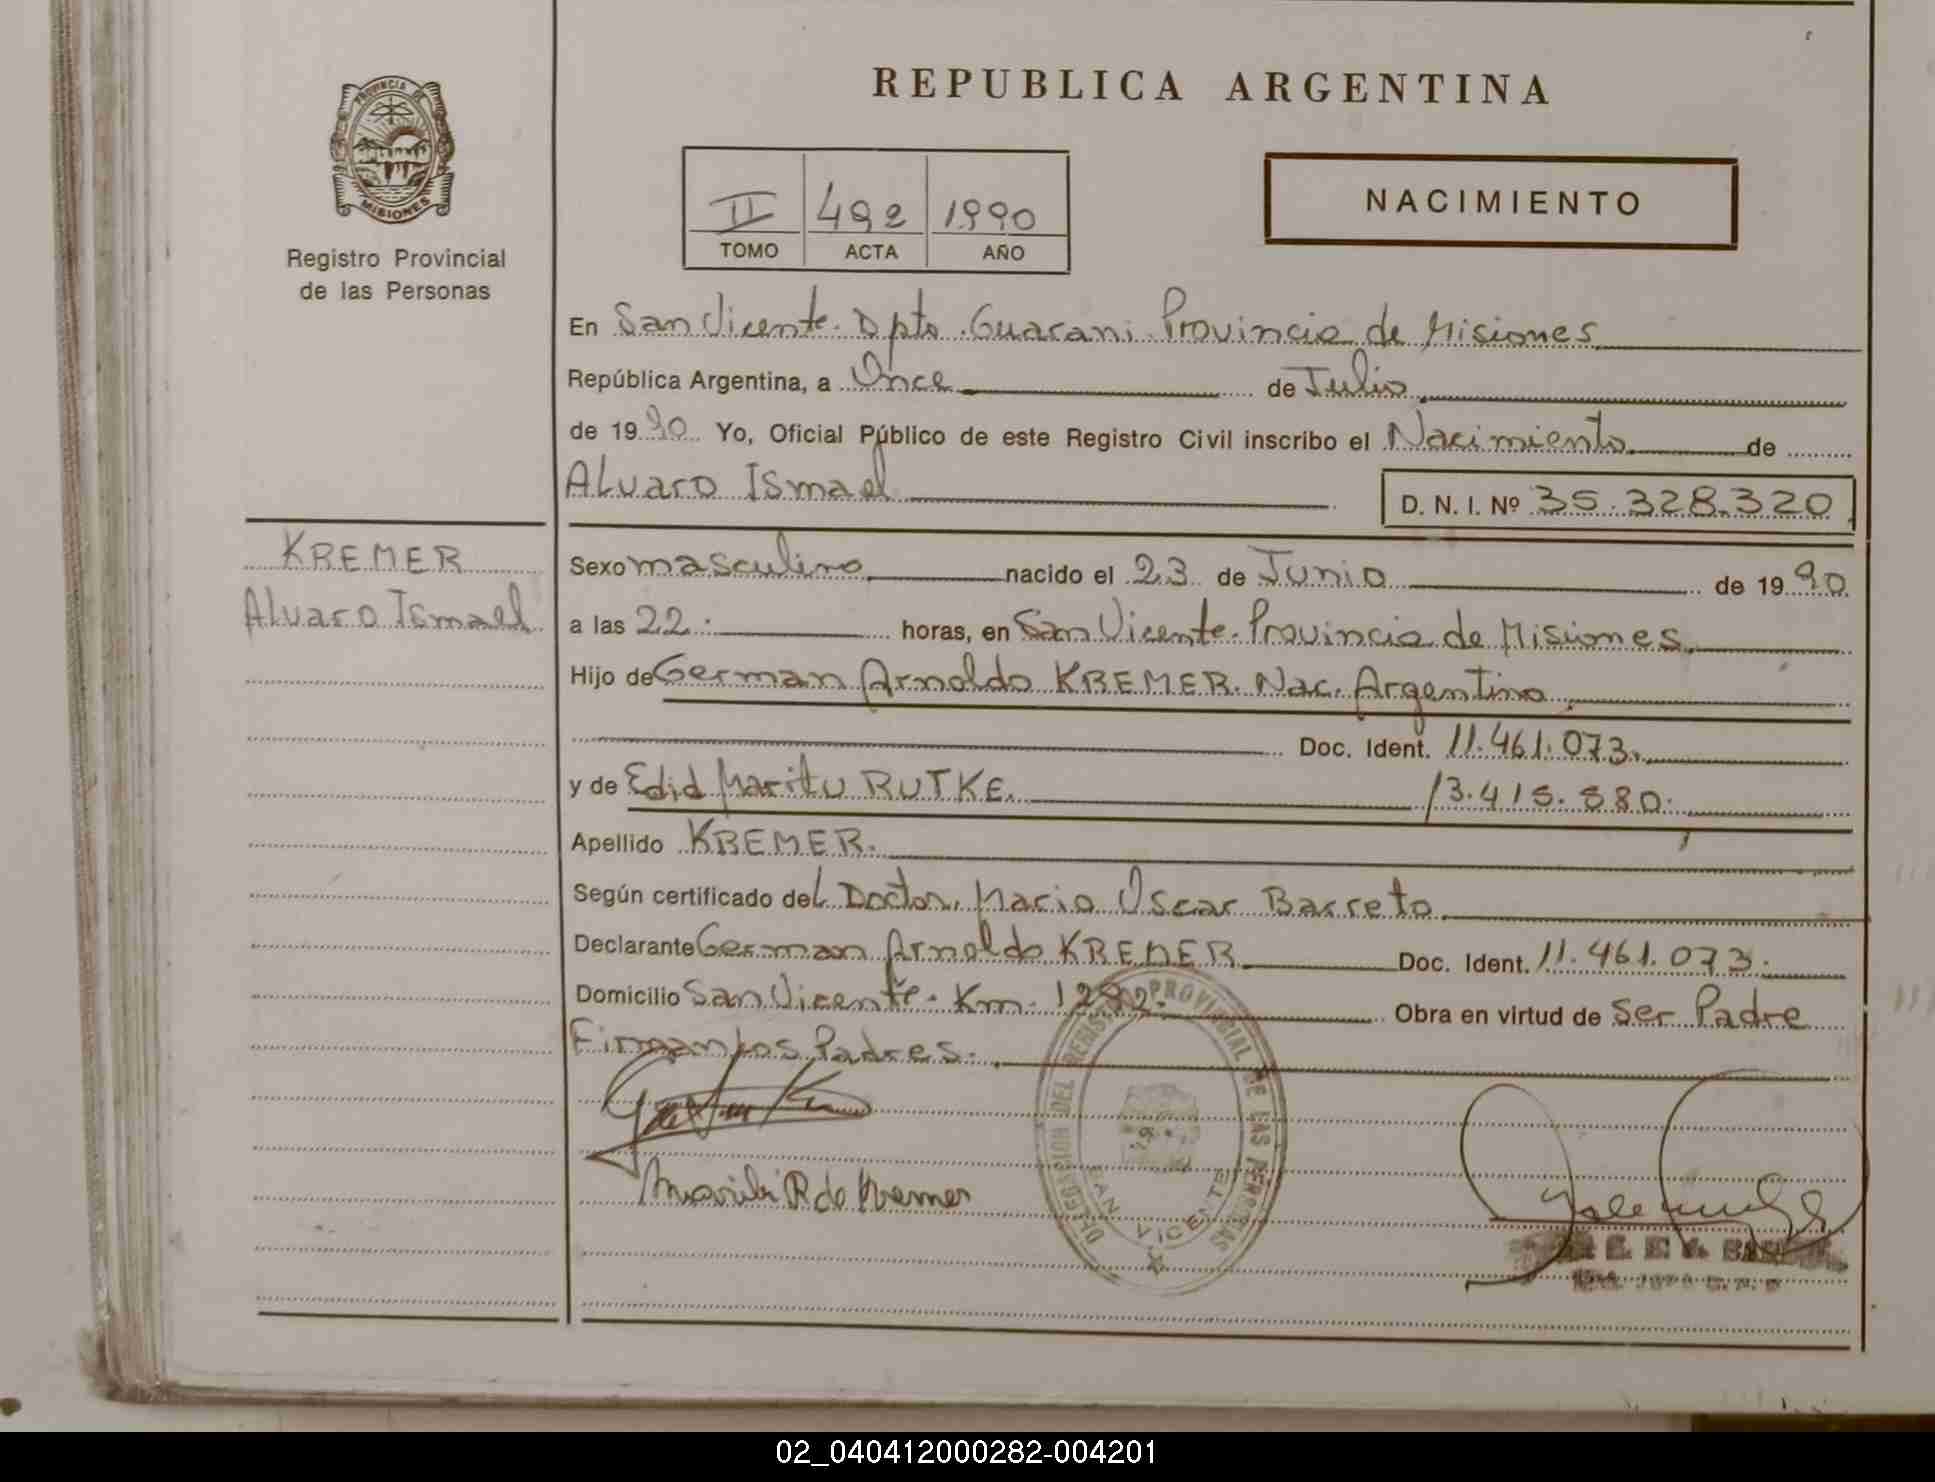 PROVINCIA DE
MISIONES
Registro Provincial
de las Personas
REPUBLICA ARGENTINA
II 492 1990
TOMO ACTA AÑO
NACIMIENTO
En San Vicente. Dpto. Guarani. Provincia de Misiones
República Argentina, a Once de Julio
de 1990 Yo, Oficial Público de este Registro Civil inscribo el Nacimiento de
Alvaro Ismael
D. N. I. Nº 35.328.320
KREMER
Alvaro Ismael
Sexo masculino nacido el 23 de Junio de 1990
a las 22: horas, en San Vicente. Provincia de Misiones
Hijo de German Arnoldo KREMER. Nac. Argentino
Doc. Ident. 11.461.073.
y de Edid Marita RUTKE. 13.415.880.
Apellido KREMER.
Según certificado del Doctor. Mario Oscar Barreto
Declarante German Arnoldo KREMER Doc. Ident. 11.461.073.
Domicilio San Vicente. Km. 1282. Obra en virtud de Ser Padre
Firman los Padres.
R de Kremer
DELEGACION DEL REGISTRO PROVINCIAL DE LAS PERSONAS
SAN VICENTE
02_040412000282-004201